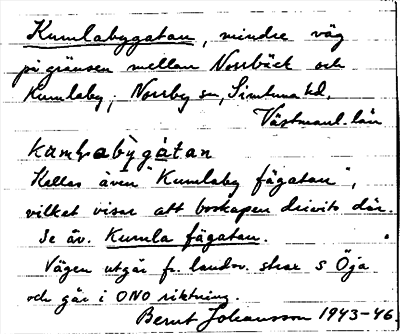 Kumlabygatan, mindre väg
på gränsen mellan Norrbäck och
Kumlaby, Norrby sn, Simtuna hd,
Västmanl. län
kamlabygàtan
Kallas även "Kumlaby fägatan",
vilket visar att boskapen drivits där.
Se äv. Kumla fägatan.
Vägen utgår fr. landsv. strax S Öja
och går i ONO riktning.
Bernt Johansson 1943-46.